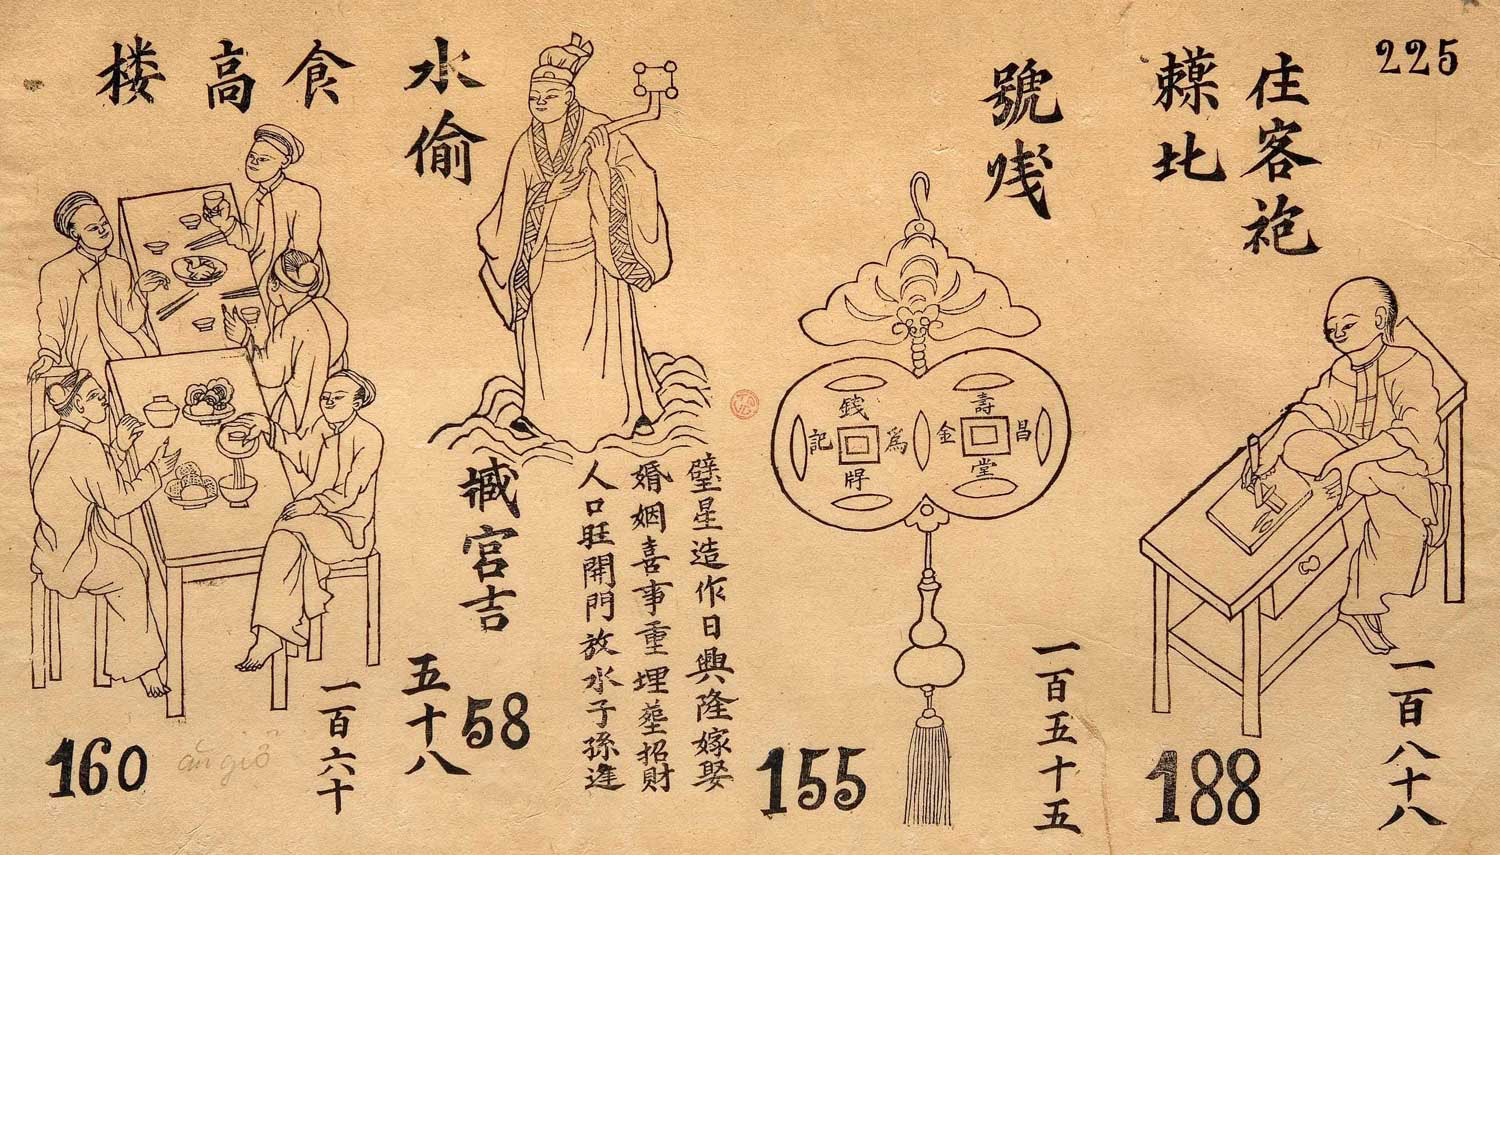 225
住客袍
比
一百八十八
188
號
錢爲牌記
壽昌堂金
一百五十五
155
水偷
壁星造作日興隆嫁娶
婚姻喜事重埋塟招財
人口旺開門放水子孫進
臧宮吉
58
五十八
食高楼
一百六十
ăn giỗ
160